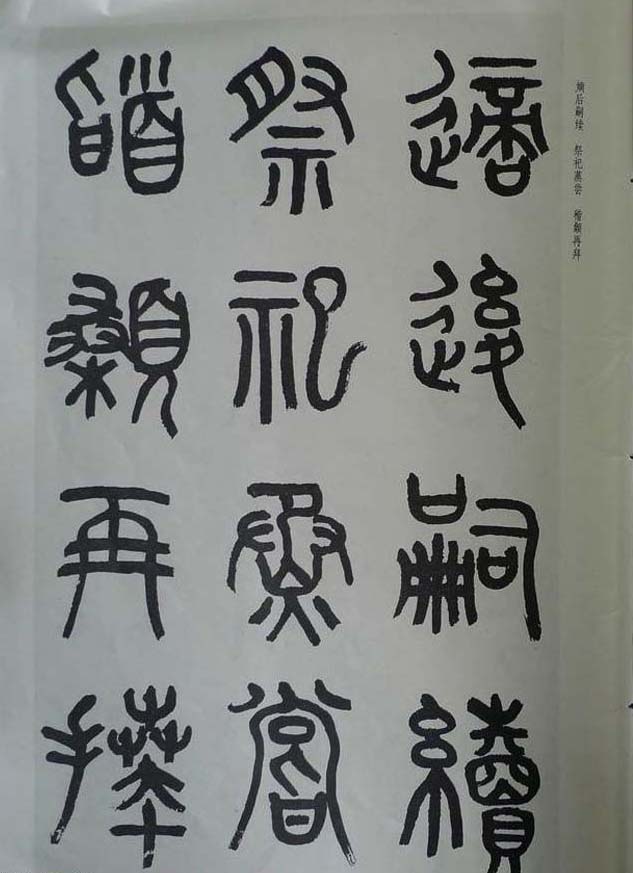 嫡后嗣续 祭祀蒸尝 稽颡再拜
適後嗣續
祭祀烝嘗
䭫顙再拜